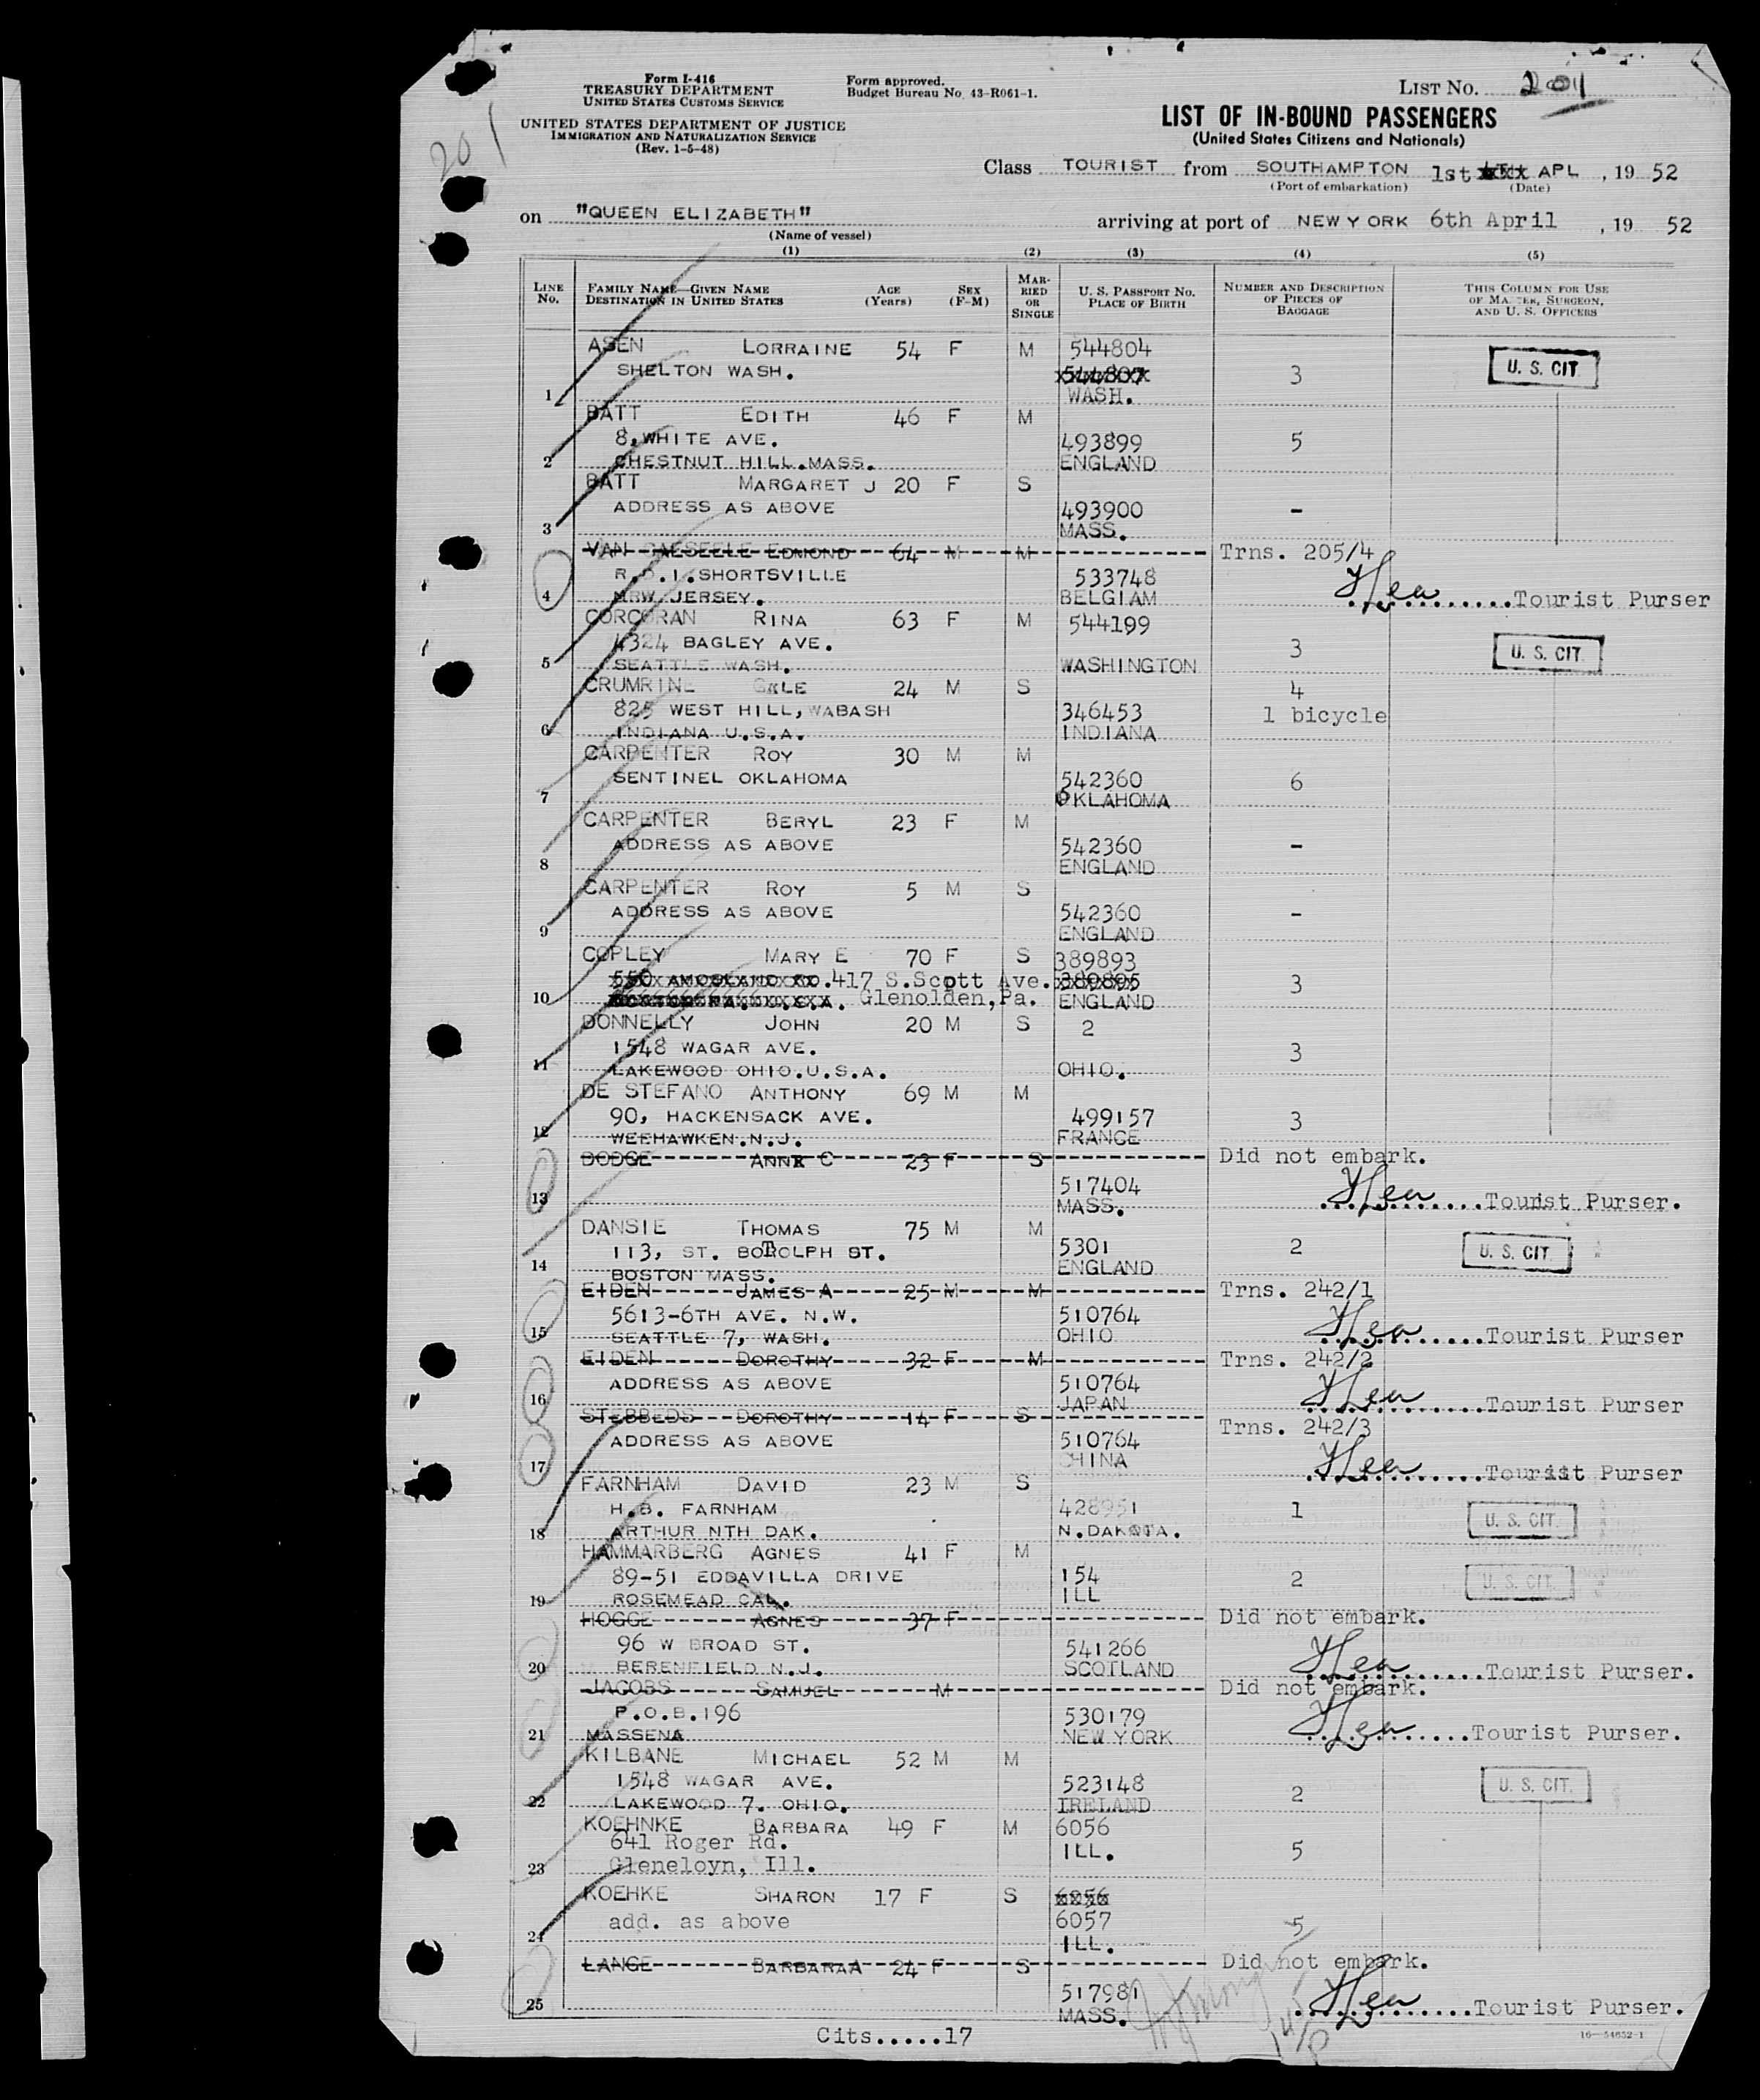 Form I-416
TREASURY DEPARTMENT
UNITED STATES CUSTOMS SERVICE
UNITED STATES DEPARTMENT OF JUSTICE
IMMIGRATION AND NATURALIZATION SERVICE
(Rev. 1-5-48)
Form approved.
Budget Bureau No. 43-R061-1.
LIST NO. 201
201
LIST OF IN-BOUND PASSENGERS
(United States Citizens and Nationals)
Class TOURIST from SOUTHAMPTON 1st APL, 19 52
(Port of embarkation) (Date)
on "QUEEN ELIZABETH" arriving at port of NEW YORK 6th April, 19 52
(Name of vessel)
(1) (2) (3) (4) (5)
LINE No. FAMILY NAME—GIVEN NAME DESTINATION IN UNITED STATES AGE (Years) SEX (F-M) MARRIED OR SINGLE U. S. PASSPORT NO. PLACE OF BIRTH NUMBER AND DESCRIPTION OF PIECES OF BAGGAGE THIS COLUMN FOR USE OF MASTER, SURGEON, AND U. S. OFFICERS
ASEN LORRAINE 54 F M 544804
SHELTON WASH. 544807 3 U. S. CIT.
1 WASH.
BATT EDITH 46 F M
8, WHITE AVE. 493899 5
2 CHESTNUT HILL.MASS. ENGLAND
BATT MARGARET J 20 F S
ADDRESS AS ABOVE 493900 -
3 MASS.
VAN CAESEELE EDMOND 64 M M Trns. 205/4
R.D.1.SHORTSVILLE 533748
4 NRW JERSEY. BELGIAM Tourist Purser
CORCORAN RINA 63 F M 544199
4324 BAGLEY AVE. 3 U. S. CIT.
5 SEATTLE WASH. WASHINGTON
CRUMRINE GALE 24 M S 4
825 WEST HILL, WABASH 346453 1 bicycle
6 INDIANA U.S.A. INDIANA
CARPENTER ROY 30 M M
SENTINEL OKLAHOMA 542360 6
7 OKLAHOMA
CARPENTER BERYL 23 F M
ADDRESS AS ABOVE 542360 -
8 ENGLAND
CARPENTER ROY 5 M S
ADDRESS AS ABOVE 542360 -
9 ENGLAND
COPLEY MARY E 70 F S 389893
417 S.Scott Ave. 389895 3
10 Glenolden, Pa. ENGLAND
DONNELLY JOHN 20 M S 2
1548 WAGAR AVE. 3
11 LAKEWOOD OHIO.U.S.A. OHIO.
DE STEFANO ANTHONY 69 M M
90, HACKENSACK AVE. 499157 3
12 WEEHAWKEN.N.J. FRANCE
DODGE ANN C 23 F S Did not embark.
517404
13 MASS. Tourist Purser.
DANSIE THOMAS 75 M M
113, ST. BOTOLPH ST. 5301 2 U. S. CIT.
14 BOSTON MASS. ENGLAND
EIDEN JAMES A 25 M M Trns. 242/1
5613-6TH AVE. N.W. 510764
15 SEATTLE 7, WASH. OHIO Tourist Purser
EIDEN DOROTHY 32 F M Trns. 242/2
ADDRESS AS ABOVE 510764
16 JAPAN Tourist Purser
STEBBEDS DOROTHY 14 F S Trns. 242/3
ADDRESS AS ABOVE 510764
17 CHINA Tourist Purser
FARNHAM DAVID 23 M S
H.B. FARNHAM 428951 1 U. S. CIT.
18 ARTHUR NTH DAK. N.DAKOTA.
HAMMARBERG AGNES 41 F M
89-51 EDDAVILLA DRIVE 154 2 U. S. CIT.
19 ROSEMEAD CAL. ILL
HOGGE AGNES 37 F Did not embark.
96 W BROAD ST. 541266
20 BERENFIELD N.J. SCOTLAND Tourist Purser.
JACOBS SAMUEL M Did not embark.
P.O.B.196 530179
21 MASSENA NEW YORK Tourist Purser.
KILBANE MICHAEL 52 M M
1548 WAGAR AVE. 523148 2 U. S. CIT.
22 LAKEWOOD 7. OHIO. IRELAND
KOEHNKE BARBARA 49 F M 6056
641 Roger Rd. ILL. 5
23 Gleneloyn, Ill.
KOEHKE SHARON 17 F S 6056
add. as above 6057 5
24 ILL.
LANGE BARBARA A 24 F S Did not embark.
517981
25 MASS. Tourist Purser.
Cits.....17
16—54652-1